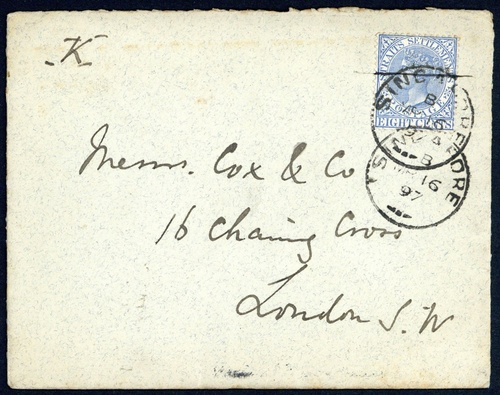 K
STRAITS SETTLEMENTS
POSTAGE
EIGHT CENTS
SINGAPORE
B
16
97
SINGAPORE
B
16
97
Messrs. Cox & Co
16 Charing Cross
London S.W